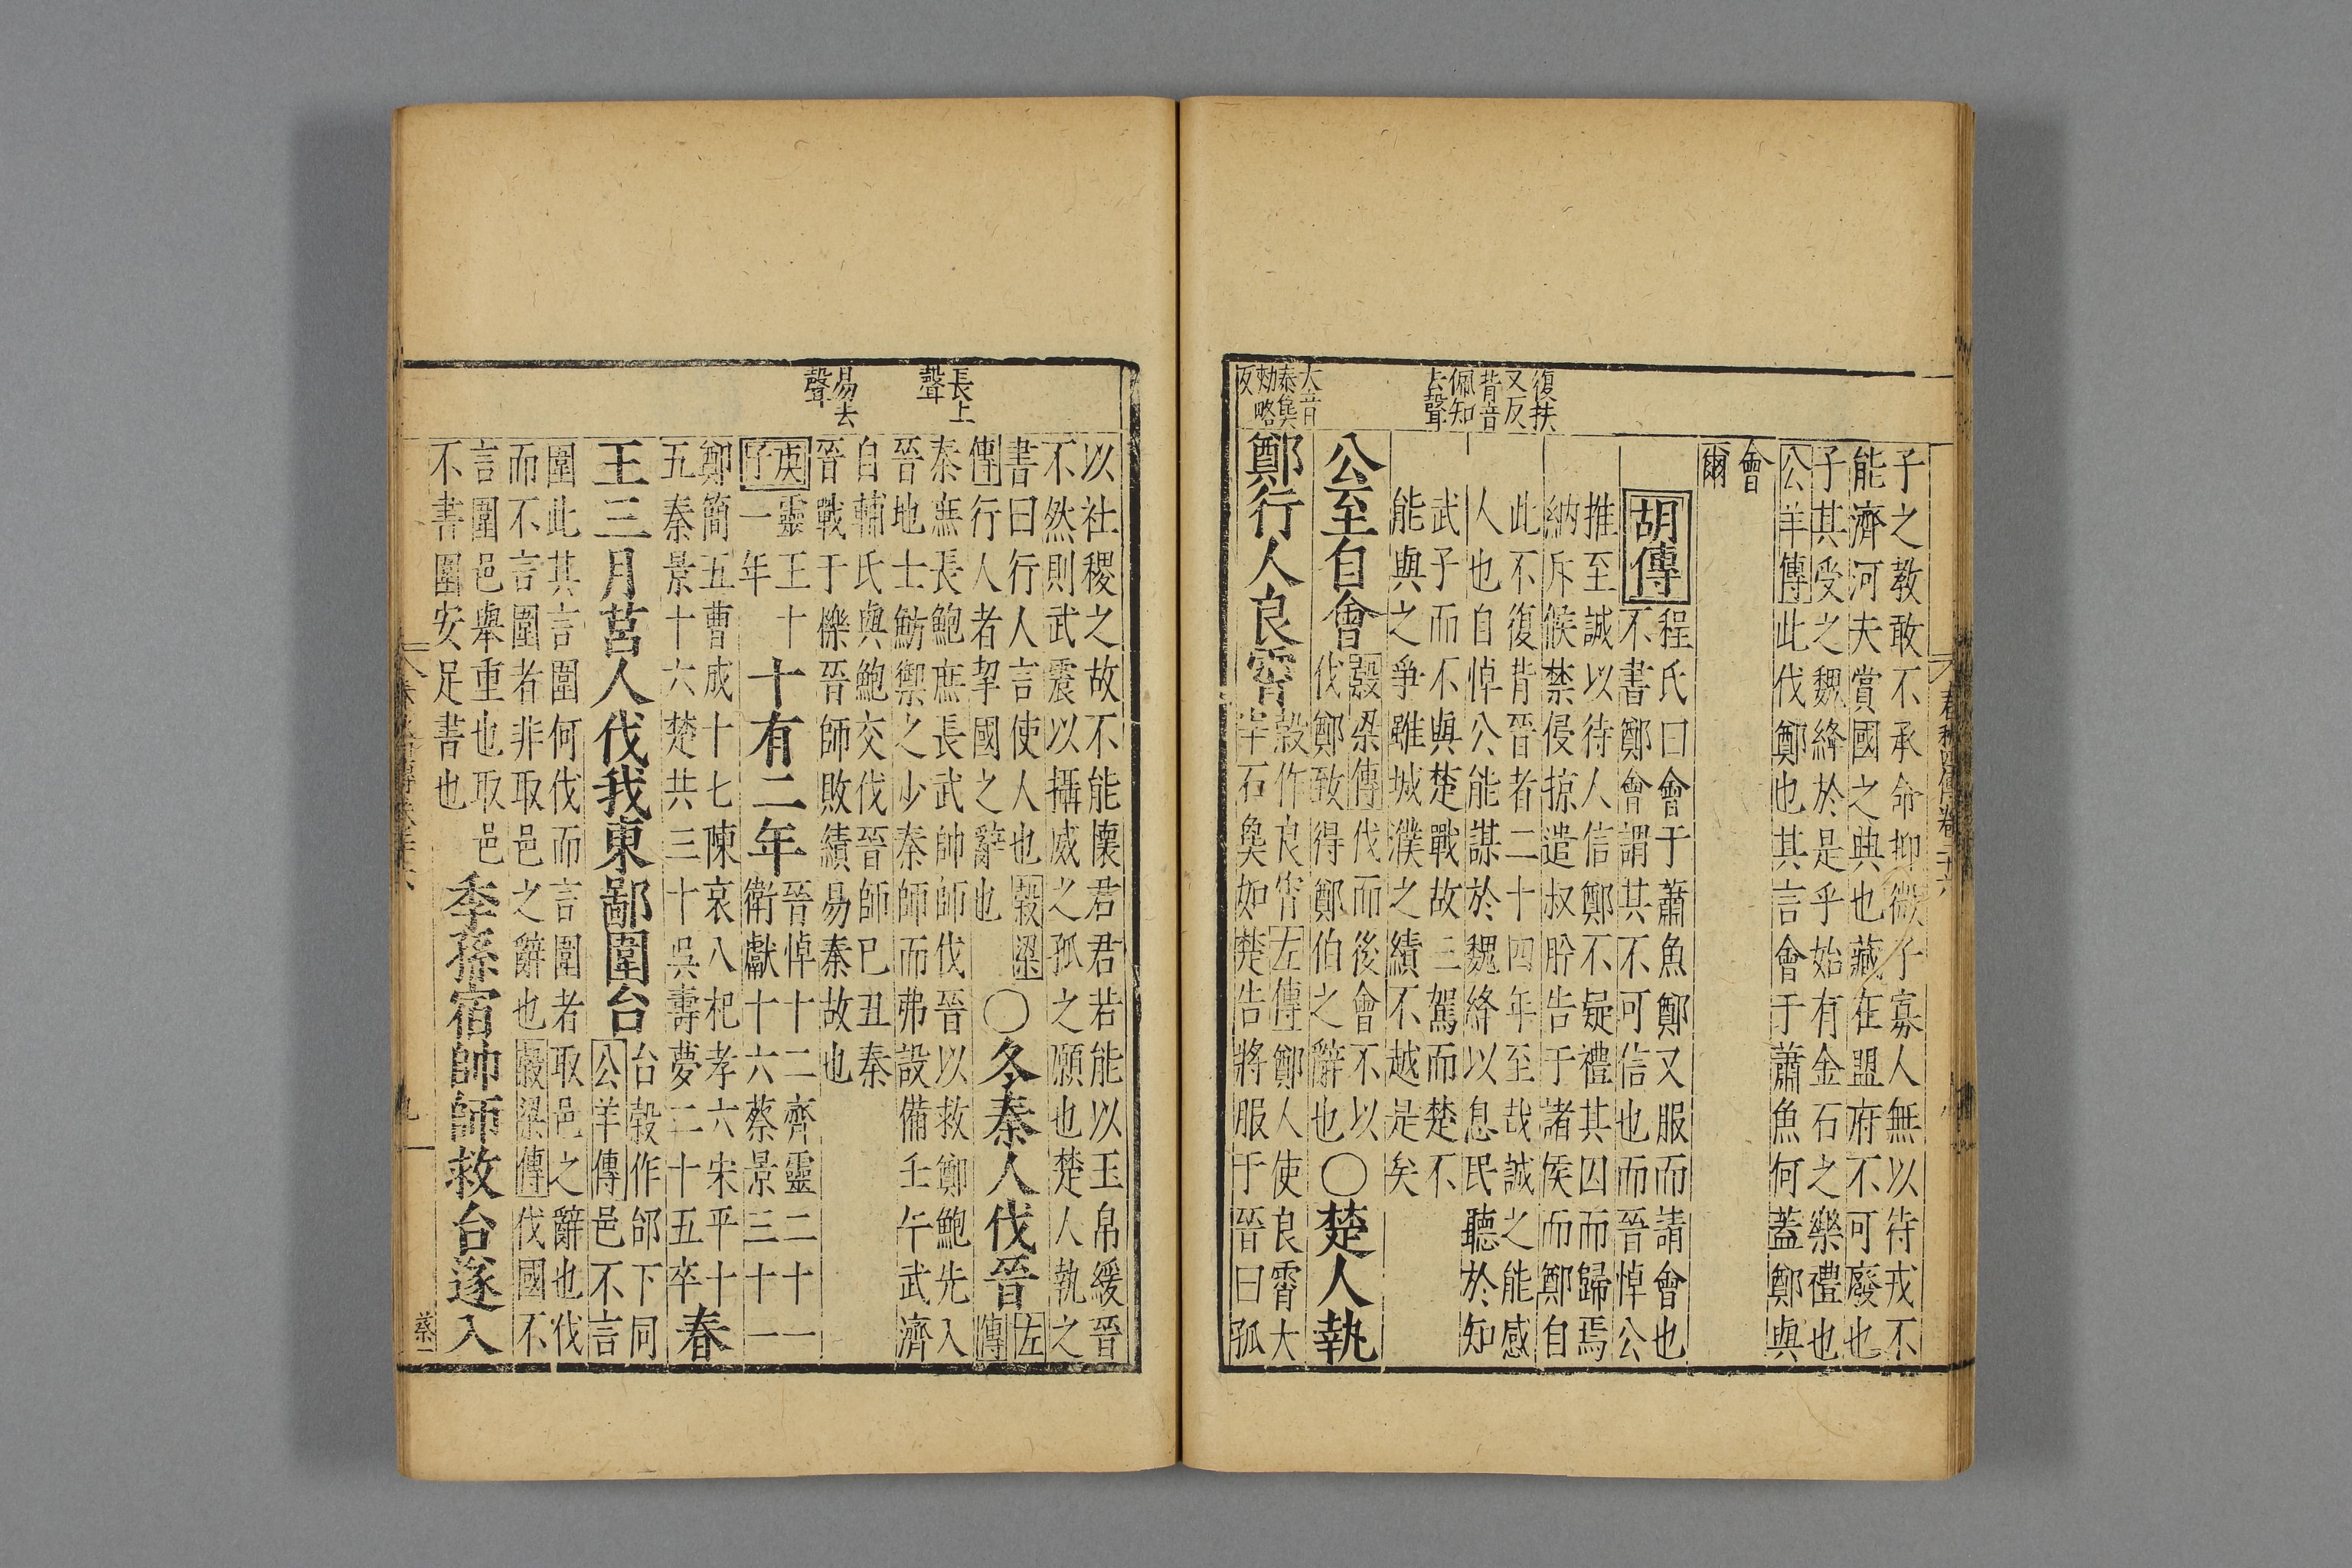 春秋四傳卷二十六
子之教敢不承命抑微子寡人無以待戎不
能濟河夫賞國之典也藏在盟府不可廢也
子其受之魏絳於是乎始有金石之樂禮也
公羊傳此伐鄭也其言會于蕭魚何蓋鄭與
會
爾
胡傳
程氏曰會于蕭魚鄭又服而請會也
不書鄭會謂其不可信也而晉悼公
推至誠以待人信鄭不疑禮其囚而歸焉
納斥候禁侵掠遣叔肸告于諸侯而鄭自
此不復背晉者二十四年至哉誠之能感
人也自悼公能謀於魏絳以息民聽於知
武子而不與楚戰故三駕而楚不
能與之爭雖城濮之績不越是矣
復扶
又反
背音
佩知
去聲
公至自會
穀梁傳伐而後會不以
伐鄭致得鄭伯之辭也
○楚人執
鄭行人良霄
穀作良宵左傳鄭人使良霄大
宰石㚟如楚告將服于晉曰孤
大音
泰㚟
勑略
反
以社稷之故不能懷君君若能以玉帛綏晉
不然則武震以攝威之孤之願也楚人執之
書曰行人言使人也穀梁
傳行人者挈國之辭也
○冬秦人伐晉
左
傳
秦庶長鮑庶長武帥師伐晉以救鄭鮑先入
晉地士魴禦之少秦師而弗設備壬午武濟
自輔氏與鮑交伐晉師巳丑秦
晉戰于櫟晉師敗績易秦故也
長上
聲
易去
聲
庚
子
靈王十
一年
十有二年
晉悼十二齊靈二十一
衛獻十六蔡景三十一
鄭簡五曹成十七陳哀八杞孝六宋平十
五秦景十六楚共三十吳壽夢二十五卒
春
王三月莒人伐我東鄙圍台
台穀作邰下同
公羊傳邑不言
圍此其言圍何伐而言圍者取邑之辭也伐
而不言圍者非取邑之辭也穀梁傳伐國不
言圍邑舉重也取邑
不書圍安足書也
季孫宿帥師救台遂入
九
蔡一